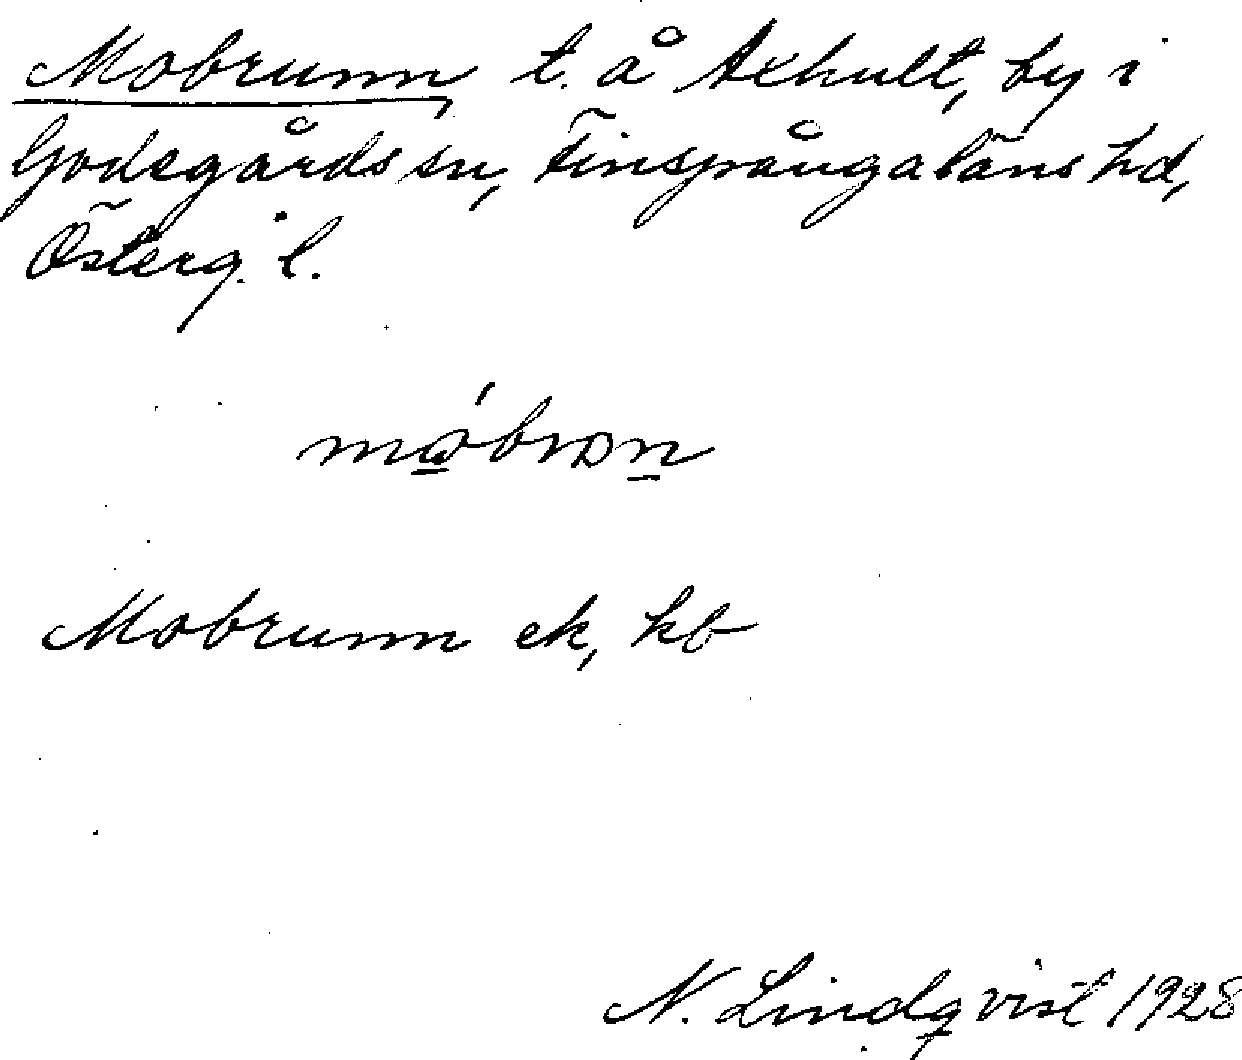 Mobrunn, t. å Axhult, by i
Godegårds sn, Finspångaläns hd,
Österg. l.
Mobrunn ek, kb
N. Lindqvist 1928